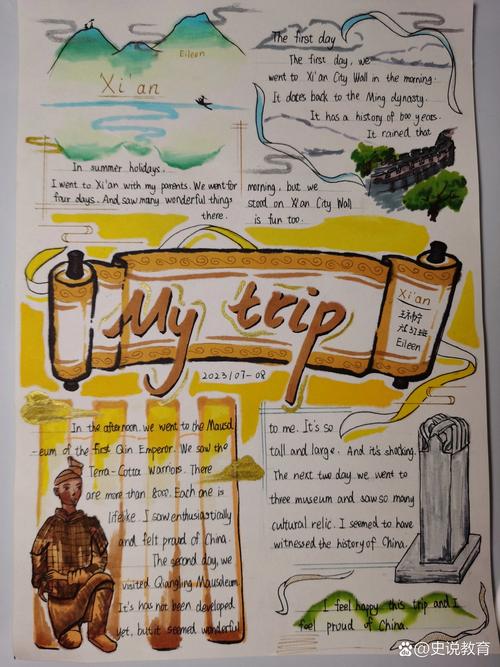 Eileen
Xi'an
In summer holidays.
I went to Xi'an with my parents. We went for
four days. And saw many wonderful things
there.
The first day
The first day, we
went to Xi'an City Wall in the morning.
It dates back to the Ming dynasty.
It has a history of 600 years.
It rained that
morning, but we
stood on Xi'an City Wall
is fun too.
My trip
2023/07-08
Xi'an
班
Eileen
In the afternoon. we went to the Mausol
-eum of the first Qin Emperor. We saw the
Terra-Cotta Warriors. There
are more than 8000. Each one is
lifelike. I saw enthusiastically
and felt proud of China.
The second day, we
visited Qianling Mausoleum.
It's has not been developed
yet, but it seemed wonderful
to me. It's so
tall and large. And it's shocking.
The next two day we went to
three museum and saw so many
cultural relic. I seemed to have
witnessed the history of China.
I feel happy this trip and I
feel proud of China.
史说教育